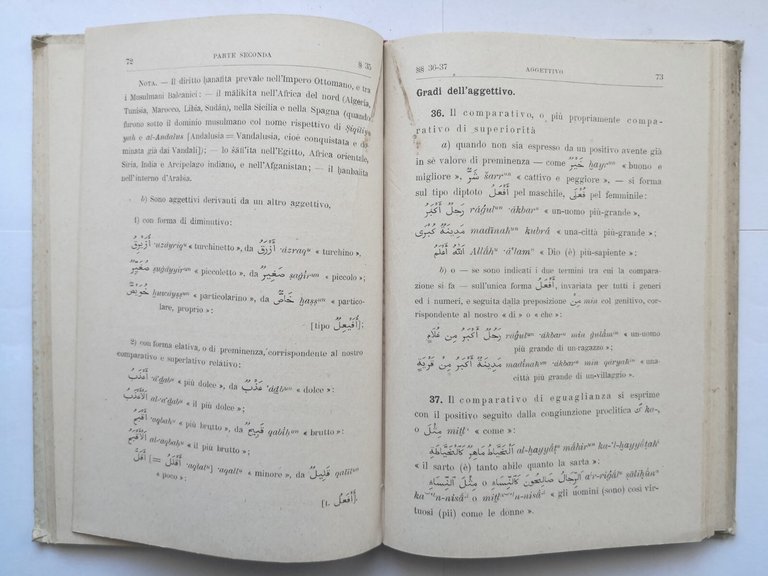 72
PARTE SECONDA
§ 35
NOTA. — Il diritto ḥanafita prevale nell'Impero Ottomano, e tra
i Musulmani Balcanici: — il mālikita nell'Africa del nord (Algeria,
Tunisia, Marocco, Libia, Sudán), nella Sicilia e nella Spagna (quando
furono sotto il dominio musulmano col nome rispettivo di Ṣiqilliy-
yah e al-Andalus [Andalusia = Vandalusia, cioè conquistata e do-
minata già dai Vandali]); — lo šāfi'ita nell'Egitto, Africa orientale,
Siria, India e Arcipelago indiano, e nell'Afganistan; — il ḥanbalita
nell'interno d'Arabia.
b) Sono aggettivi derivanti da un altro aggettivo,
1) con forma di diminutivo:
أُزَيْرِقُ 'uzáyriqᵘ « turchinetto », da أَزْرَقُ 'ázraqᵘ « turchino »;
صُغَيِّرٌ ṣuġáyyirᵘⁿ « piccoletto », da صَغِيرٌ ṣaġîrᵘⁿ « piccolo »;
خُوَيْصٌّ ḫuwáyṣṣᵘⁿ « particolarino », da خَاصٌّ ḫaṣṣᵘⁿ « partico-
lare, proprio »;
[tipo أُفَيْعِلُ];
2) con forma elativa, o di preminenza, corrispondente al nostro
comparativo e superlativo relativo:
أَعْذَبُ 'á'ḏabᵘ « più dolce », da عَذْبٌ 'áḏbᵘⁿ « dolce »;
الْأَعْذَبُ al-a'ḏabᵘ « il più dolce »;
أَقْبَحُ 'aqbaḥᵘ « più brutto », da قَبِيحٌ qabîḥᵘⁿ « brutto »;
الْأَقْبَحُ al-aqbaḥᵘ « il più brutto »;
أَقَلُّ [= أَقْلَلُ 'aqlalᵘ] 'aqallᵘ « minore », da قَلِيلٌ qalîlᵘⁿ
« poco »;
[t. أَفْعَلُ].
§§ 36-37
AGGETTIVO
73
Gradi dell'aggettivo.
36. Il comparativo, o più propriamente compa-
rativo di superiorità
a) quando non sia espresso da un positivo avente già
in sè valore di preminenza — come خَيْرٌ ḫayrᵘⁿ « buono e
migliore », شَرٌّ šarrᵘⁿ « cattivo e peggiore », — si forma
sul tipo diptoto أَفْعَلُ pel maschile, فُعْلَى pel femminile:
رَجُلٌ أَكْبَرُ ráǧulᵘⁿ 'ákbarᵘ « un-uomo più-grande »,
مَدِينَةٌ كُبْرَى madînahᵘⁿ kubrâ « una-città più-grande »,
اَللّٰهُ أَعْلَمُ Allâhᵘ 'a'lamᵘ « Dio (è) più-sapiente »;
b) o — se sono indicati i due termini tra cui la compara-
zione si fa — sull'unica forma أَفْعَلُ, invariata per tutti i generi
ed i numeri, e seguita dalla preposizione مِنْ min col genitivo, cor-
rispondente al nostro « di » o « che »:
رَجُلٌ أَكْبَرُ مِنْ غُلَامٍ ráǧulᵘⁿ 'akbarᵘ min ġulâmⁱⁿ « un-uomo
più grande di-un-ragazzo »;
مَدِينَةٌ أَكْبَرُ مِنْ قَرْيَةٍ madînahᵘⁿ 'akbarᵘ min qáryahⁱⁿ « una-
città più grande di-un-villaggio ».
37. Il comparativo di eguaglianza si esprime
con il positivo seguito dalla congiunzione proclitica كَ ka-,
o مِثْلَ miṯlᵃ « come »:
اَلْخَيَّاطُ مَاهِرٌ كَالْخَيَّاطَةِ al-ḫayyâṭᵘ mâhirᵘⁿ ka-'l-ḫayyâṭahⁱ
« il sarto (è) tanto abile quanto la sarta »;
اَلرِّجَالُ صَالِحُونَ كَالنِّسَاءِ o مِثْلَ النِّسَاءِ a'r-riǧâlᵘ ṣâliḥûnᵃ
ka-'n-nisâ'ⁱ o miṯlᵃ-'n-nisâ'ⁱ « gli uomini (sono) così vir-
tuosi (pii) come le donne ».